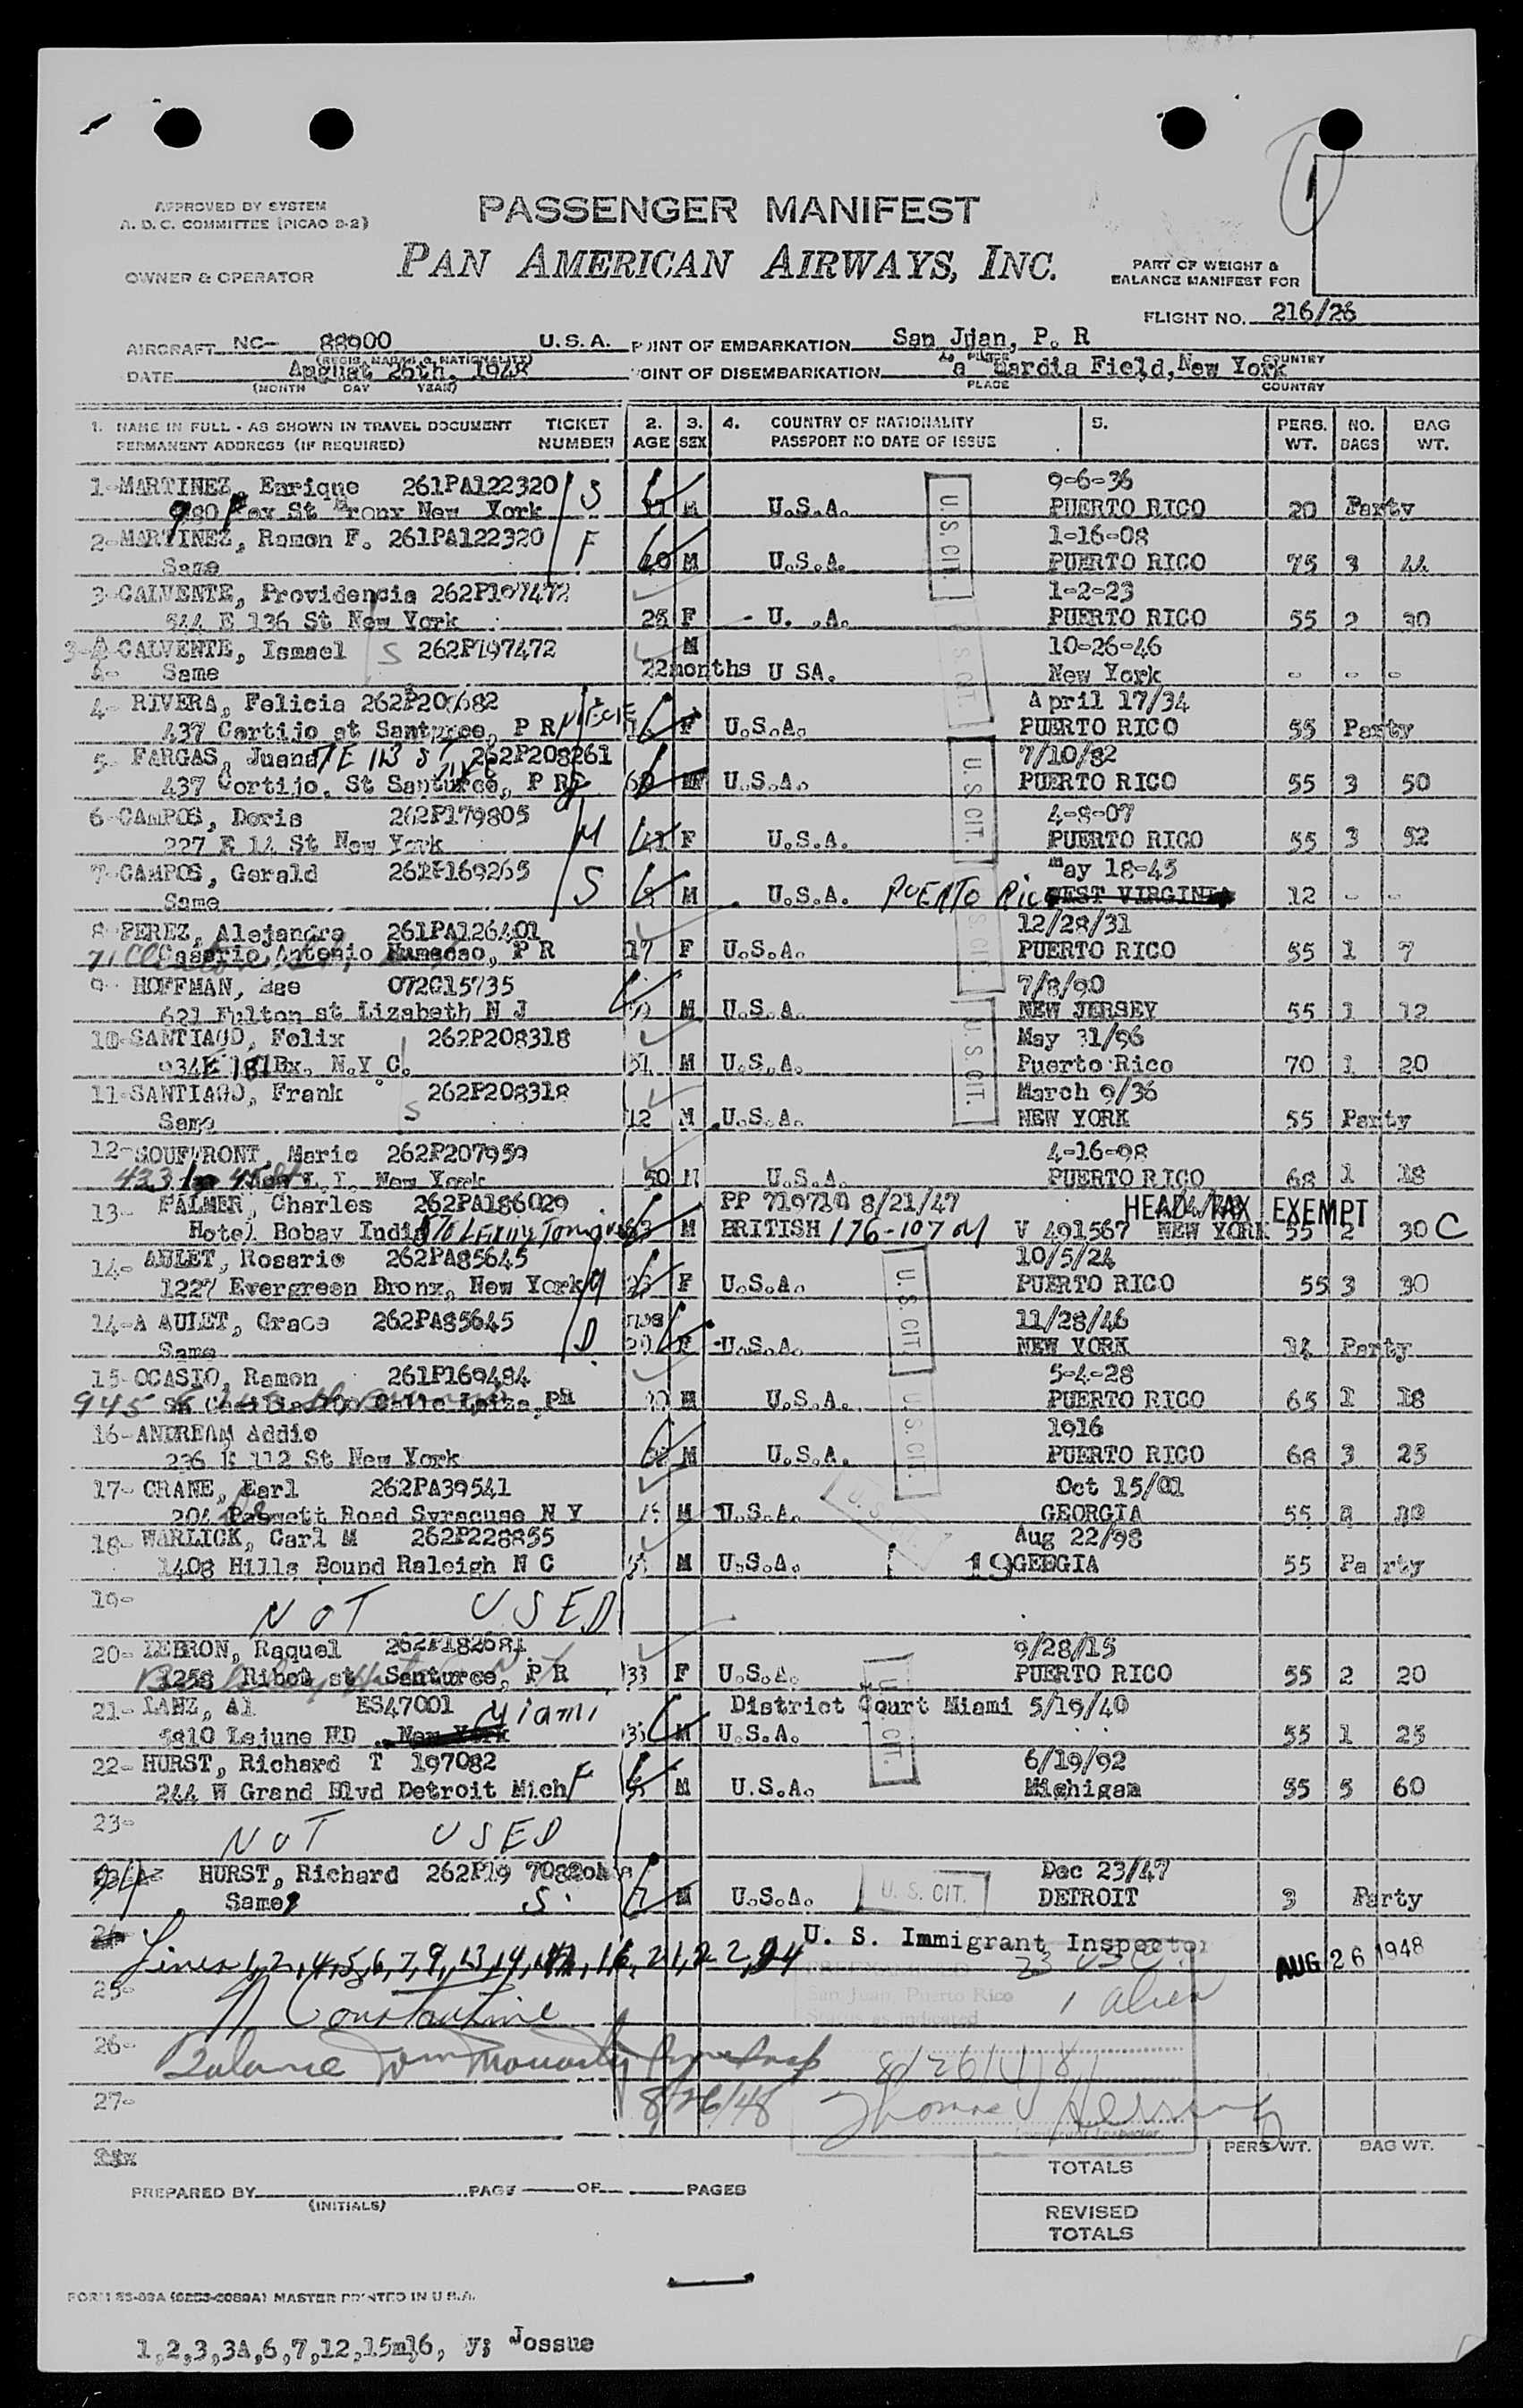 APPROVED BY SYSTEM
A. D. C. COMMITTEE (PICAO S-2)
OWNER & OPERATOR
PASSENGER MANIFEST
PAN AMERICAN AIRWAYS, INC.
PART OF WEIGHT &
BALANCE MANIFEST FOR
FLIGHT NO. 216/26
AIRCRAFT NC- 88900 U.S.A. POINT OF EMBARKATION San Juan, P. R
(REGIS. MARKS & NATIONALITY) PLACE COUNTRY
DATE August 26th, 1948 POINT OF DISEMBARKATION La Guardia Field, New York
(MONTH DAY YEAR) PLACE COUNTRY
1. NAME IN FULL - AS SHOWN IN TRAVEL DOCUMENT TICKET 2. 3. 4. COUNTRY OF NATIONALITY 5. PERS. NO. BAG
PERMANENT ADDRESS (IF REQUIRED) NUMBER AGE SEX PASSPORT NO DATE OF ISSUE WT. BAGS WT.
1- MARTINEZ, Enrique 261PA122320 S 9-6-36
Fox St Bronx New York M U.S.A. PUERTO RICO 20 Party
2- MARTINEZ, Ramon F. 261PA122320 F 1-16-08
Same 40 M U.S.A. PUERTO RICO 75 3 44
3- CALVENTE, Providencia 262P197472 1-2-23
544 E 136 St New York 25 F U. .A. PUERTO RICO 55 2 30
3-A CALVENTE, Ismael S 262P197472 M 10-26-46
4- Same 22months U SA. New York - - -
4- RIVERA, Felicia April 17/34
437 Cortijo st Santurce, P R NIECE F U.S.A. PUERTO RICO 55 Party
5- FARGAS, Juana 7 E 113 ST NYC 262P208261 7/10/82
437 Cortijo. St Santurce, P R U.S.A. PUERTO RICO 55 3 50
6- CAMPOS, Doris 262P179805 M 4-8-07
227 E 14 St New York F U.S.A. PUERTO RICO 55 3 52
7- CAMPOS, Gerald 261P169265 S May 18-45
Same M U.S.A. PUERTO RICO WEST VIRGINIA 12 - -
8- PEREZ, Alejandra 261PA126401 12/28/31
Caserio Antonio Humacao, P R 17 F U.S.A. PUERTO RICO 55 1 7
9- HOFFMAN, 072015735 7/8/90
621 Fulton st Lizabeth N J M U.S.A. NEW JERSEY 55 1 12
10- SANTIAGO, Felix 262P208318 May 31/96
934 E 181 Bx. N.Y C. 51 M U.S.A. Puerto Rico 70 1 20
11- SANTIAGO, Frank 262P208318 March 9/36
Same S 12 M U.S.A. NEW YORK 55 Party
12- SOUFFRONT, Mario 262P207959 4-16-98
423 L.I. New York 50 M U.S.A. PUERTO RICO 68 1 18
13- PALMER, Charles 262PA186029 PP 8/21/47 HEAD TAX EXEMPT
Hotel Bobay India M BRITISH 176-107 V 491567 NEW YORK 55 2 30 C
14- AULET, Rosario 262PA85645 10/5/24
1227 Evergreen Bronx, New York F U.S.A. PUERTO RICO 55 3 30
14-A AULET, Grace 262PA85645 mos 11/28/46
Same D F U.S.A. NEW YORK 14 Party
15- OCASIO, Ramon 261P169484 5-4-28
945 Calle Loiza, PR 20 M U.S.A. PUERTO RICO 65 1 18
16- ANDREAM, Addie 1916
236 E 112 St New York M U.S.A. PUERTO RICO 68 3 25
17- CRANE, Earl 262PA39541 Oct 15/01
204 Road Syracuse N Y M U.S.A. GEORGIA 55
18- WARLICK, Carl M 262P228855 Aug 22/98
1408 Hills Bound Raleigh N C M U.S.A. 19 GEEGIA 55 Party
19- NOT USED
20- LEBRON, Raquel 262P182681 9/28/15
1258 Ribot st Santurce, P R 33 F U.S.A. PUERTO RICO 55 2 20
21- LANZ, Al ES47001 Miami District Court Miami 5/19/40
Lejune RD New York M U.S.A. 55 1 25
22- HURST, Richard T 197082 6/19/92
244 W Grand Blvd Detroit Mich F M U.S.A. Michigan 55 5 60
23- NOT USED
24 HURST, Richard Dec 23/47
Same S M U.S.A. DETROIT 3 Party
U.S. CIT.
U.S. CIT.
U.S. CIT.
U.S. CIT.
U.S. CIT.
U.S. CIT
U.S. CIT.
U.S. CIT.
U.S. CIT.
U. S. Immigrant Inspector
AUG 26 1948
Lines 1, 2, 4, 5, 6, 7, 9, 13, 14, 14A, 16, 21, 22, 24
23 USC
PREEXAMINED
San Juan, Puerto Rico
Status as indicated
1 alien
25-
N Constantine
26-
Balance
8/26/48
8/26/48
27-
Immigrant Inspector
PERS WT. BAG WT.
TOTALS
REVISED
TOTALS
PREPARED BY PAGE OF PAGES
(INITIALS)
1,2,3,3A,6,7,12,15m16, y; Jossue